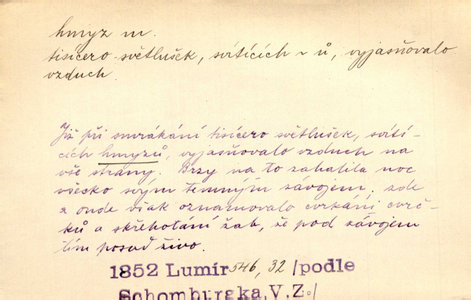 hmyz m.
tisícero světlušek, svítících ~ ů, vyjasňovalo
vzduch.
Již při smrákání tisícero světlušek, svítí-
cích hmyzů, vyjasňovalo vzduch na
vše strany. Brzy na to zahalila noc
všecko svým temným závojem; zde
a onde však oznamovalo cvrkání cvrč-
ků a skřehotání žab, že pod závojem
tím posud živo.
1852 Lumír 546, 32 /podle
Schomburgka, V.Z./